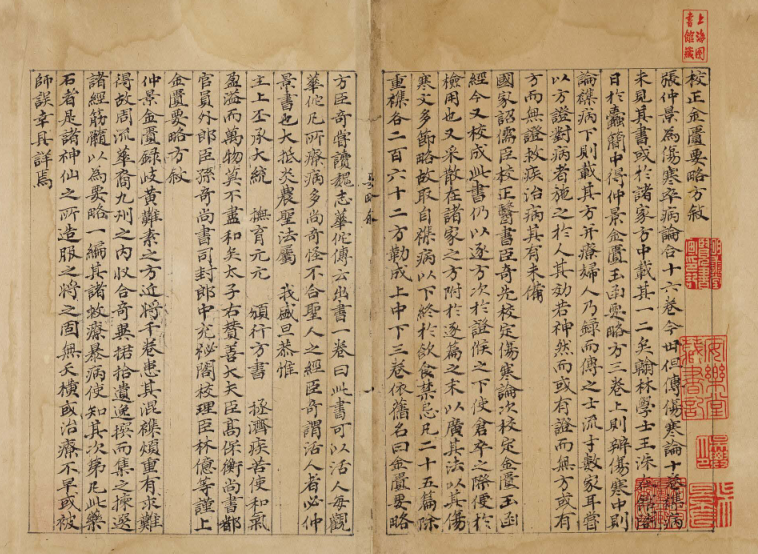 校正金匱要略方敘
張仲景為傷寒卒病論合十六卷今世但傳傷寒論十卷雜病
未見其書或於諸家方中載其一二矣翰林學士王洙
日於蠹簡中得仲景金匱玉函要略方三卷上則辯傷寒中則
論雜病下則載其方并療婦人乃錄而傳之士流才數家耳嘗
以方證對病者施之於人其効若神然而或有證而無方或有
方而無證救疾治病其有未備
國家詔儒臣校正醫書臣奇先校定傷寒論次校定金匱玉函
經今又校成此書仍以逐方次於證候之下使倉卒之際便於
檢用也又采散在諸家之方附於逐篇之末以廣其法以其傷
寒文多節略故取自雜病以下終於飲食禁忌凡二十五篇除
重襍合二百六十二方勒成上中下三卷依舊名曰金匱要略
方臣奇嘗讀魏志華佗傳云出書一卷曰此書可以活人每觀
華佗凡所療病多尚奇怪不合聖人之經臣奇謂活人者必仲
景書也大抵炎農聖法屬 我盛旦恭惟
主上丕承大統 撫育元元 頒行方書 拯濟疾苦使和氣
盈溢而萬物莫不盡和矣太子右贊善大夫臣高保衡尚書都
官員外郎臣孫奇尚書司封郎中充秘閣校理臣林億等謹上
金匱要略方敘
仲景金匱錄岐黃難素之方近將千卷患其混雜煩重有求難
得故周流華裔九州之內收合奇異捃拾遺逸揀選
諸經筋髓以為要略一編其諸救療暴病使知其次第凡此藥
石者是諸神仙之所造服之將之固無夭橫或治療不早或被
師誤幸具詳焉
上海圖
書館藏